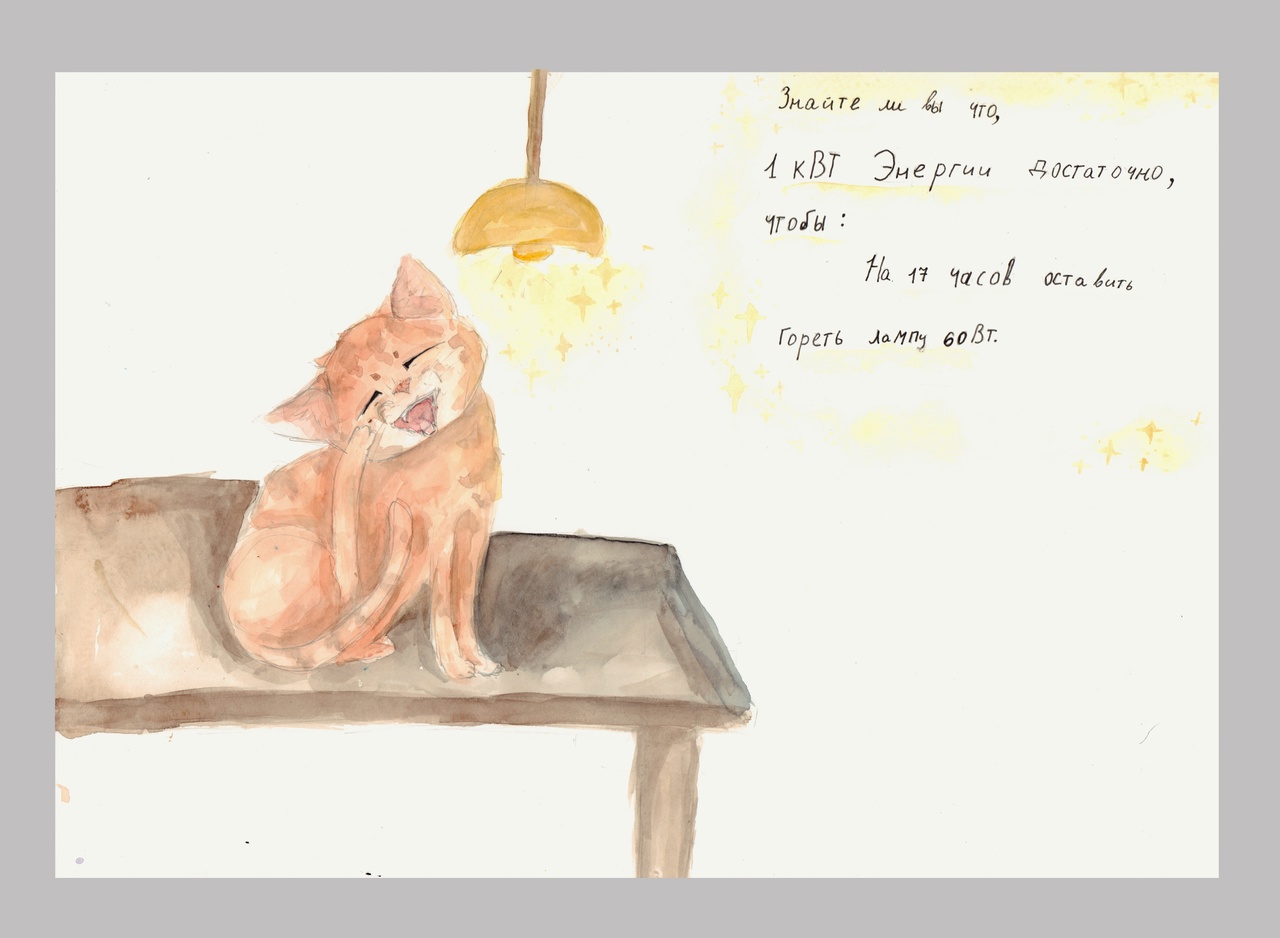 Знайте ли вы что,
1 кВТ Энергии достаточно,
чтобы:
На 17 часов оставить
Гореть лампу 60Вт.